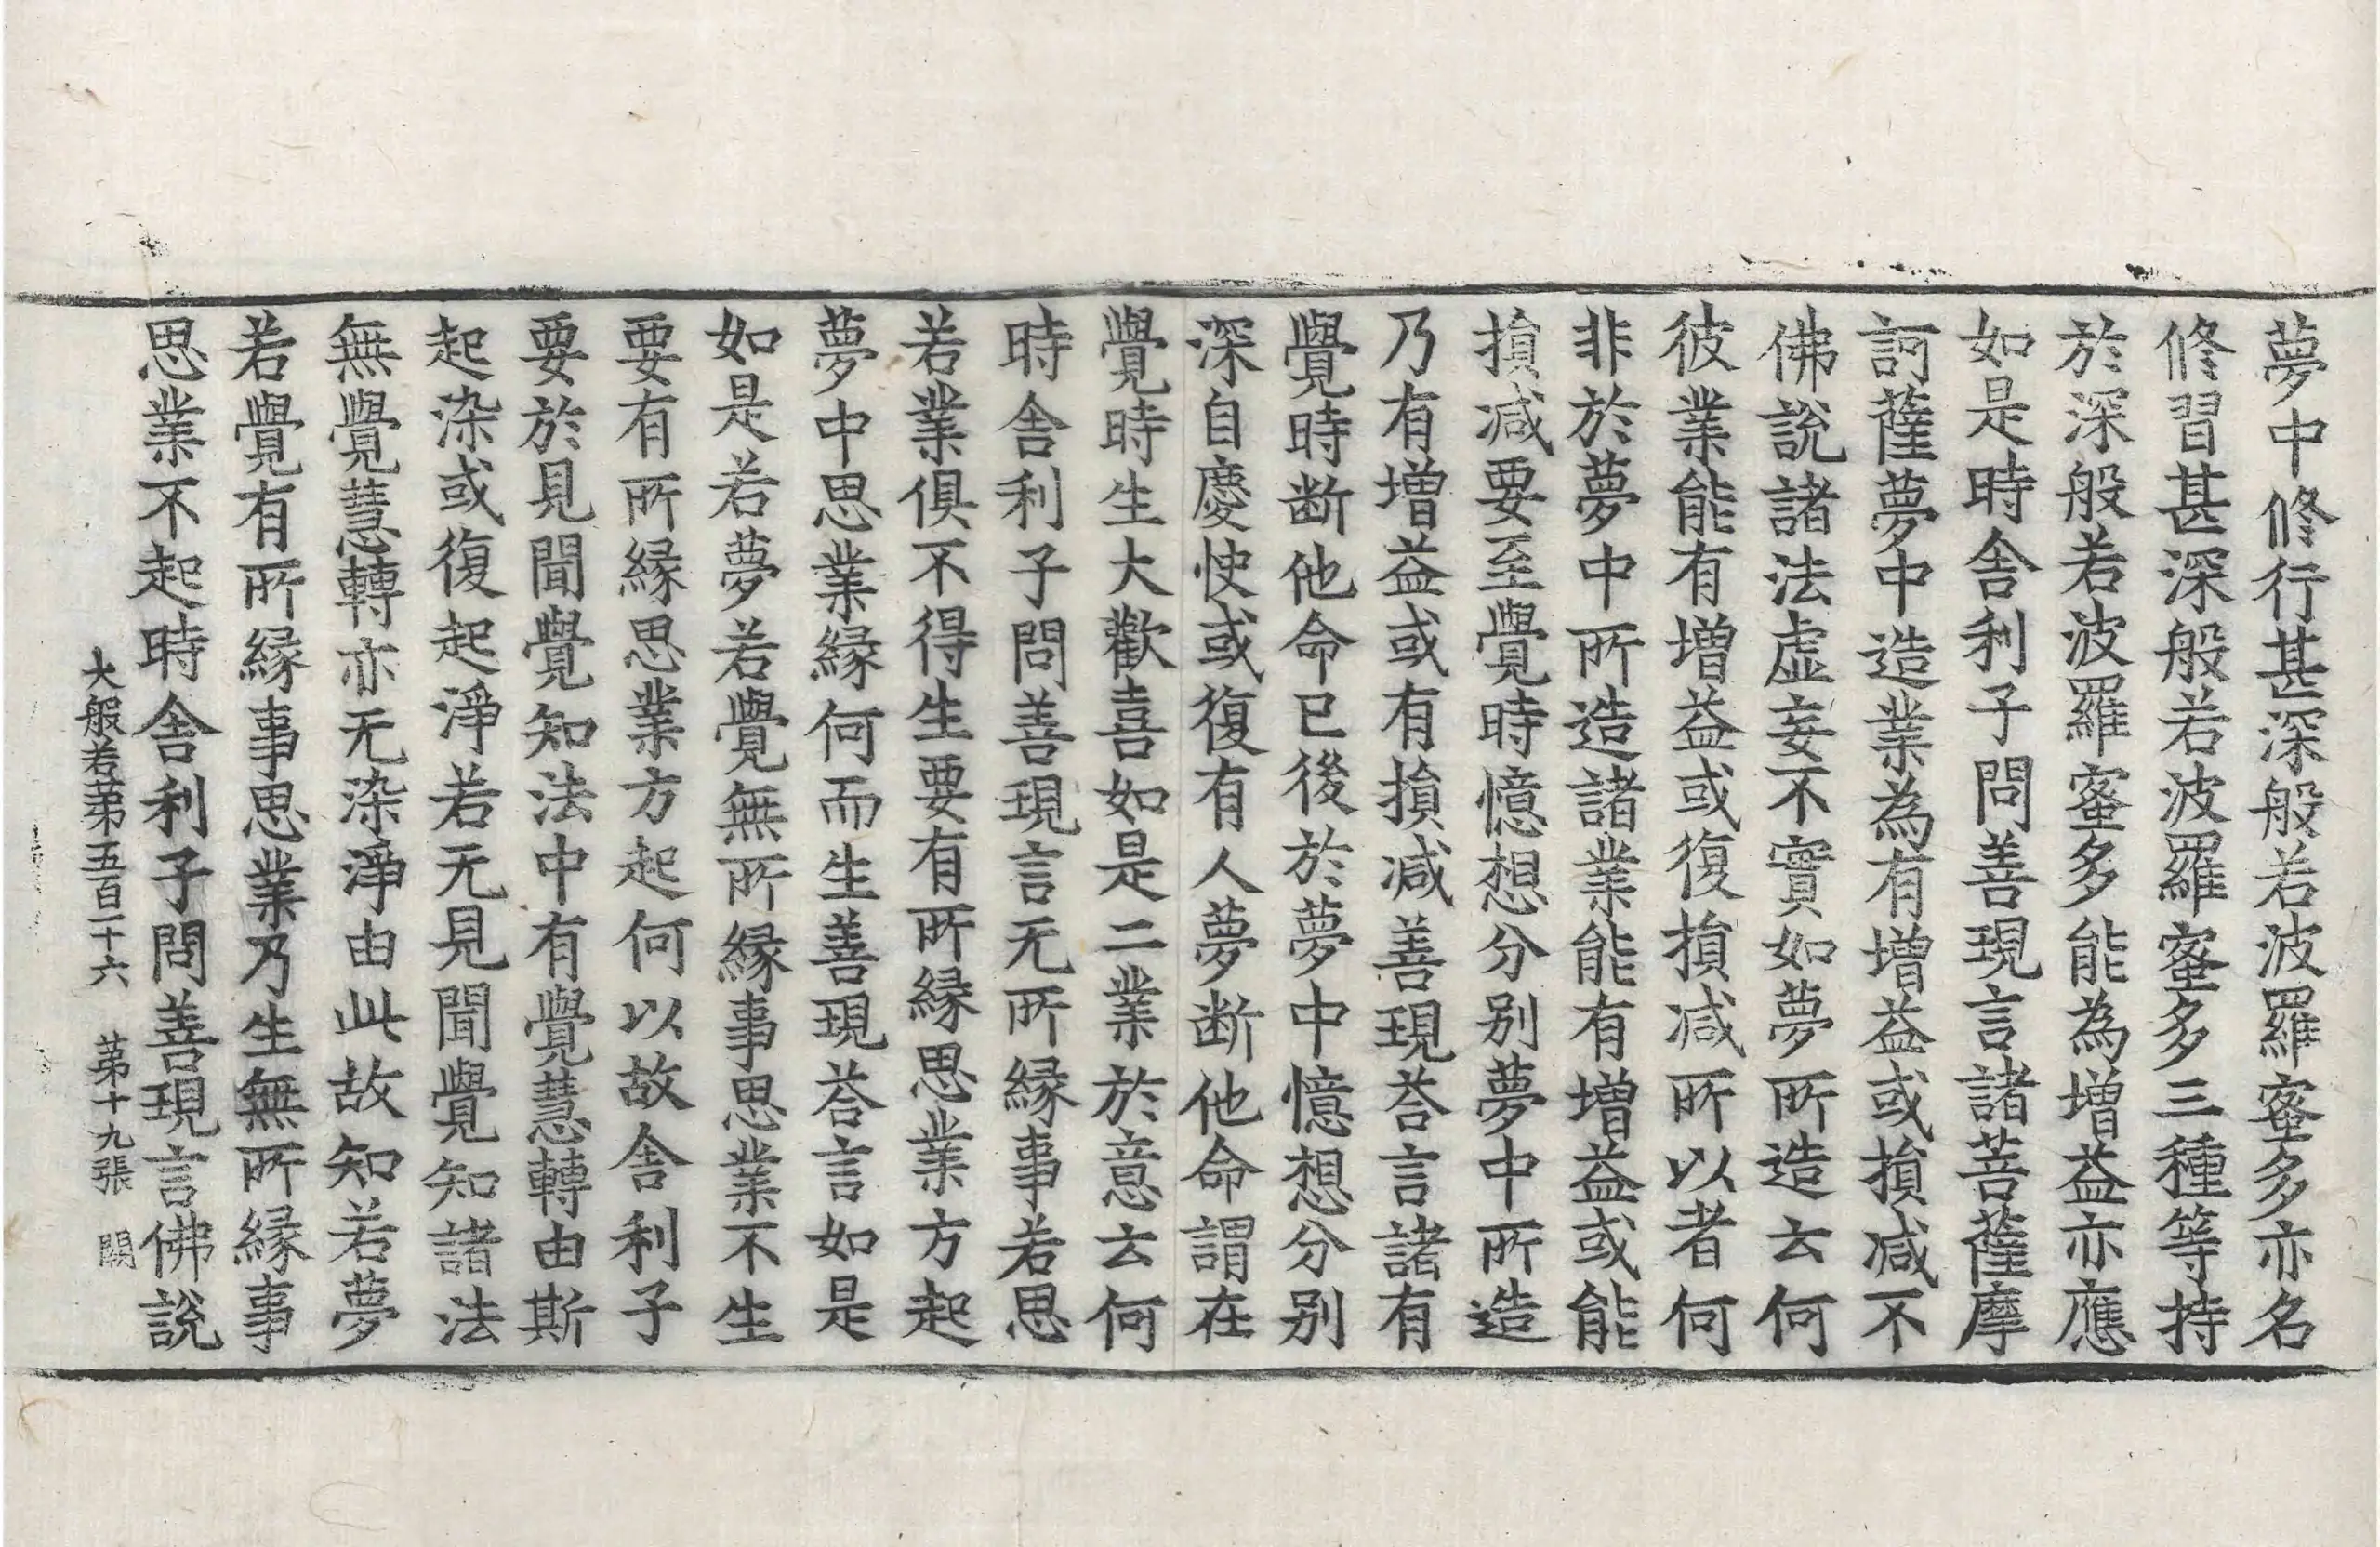 夢中修行甚深般若波羅蜜多亦名
修習甚深般若波羅蜜多三種等持
於深般若波羅蜜多能為增益亦應
如是時舍利子問善現言諸菩薩摩
訶薩夢中造業為有增益或損減不
佛說諸法虛妄不實如夢所造云何
彼業能有增益或復損減所以者何
非於夢中所造諸業能有增益或能
損減要至覺時憶想分別夢中所造
乃有增益或有損減善現荅言諸有
覺時断他命已後於夢中憶想分別
深自慶快或復有人夢断他命謂在
覺時生大歡喜如是二業於意云何
時舍利子問善現言无所緣事若思
若業俱不得生要有所緣思業方起
夢中思業緣何而生善現荅言如是
如是若夢若覺無所緣事思業不生
要有所緣思業方起何以故舍利子
要於見聞覺知法中有覺慧轉由斯
起染或復起淨若无見聞覺知諸法
無覺慧轉亦无染淨由此故知若夢
若覺有所緣事思業乃生無所緣事
思業不起時舍利子問善現言佛說
大般若苐五百二十六 苐十九張 闕